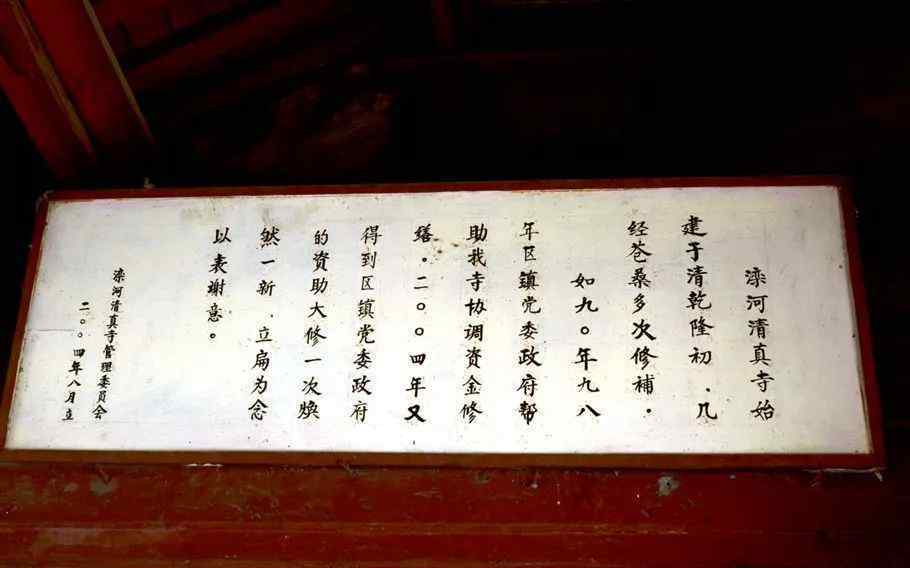 滦河清真寺始
建于清乾隆初．几
经苍桑多次修補。
如九〇年九八
年区镇党委政府帮
助我寺协调资金修
缮。二〇〇四年又
得到区镇党委政府
的资助大修一次焕
然一新．立扁为念
以表謝意。
滦河清真寺管理委員会
二〇〇四年八月立